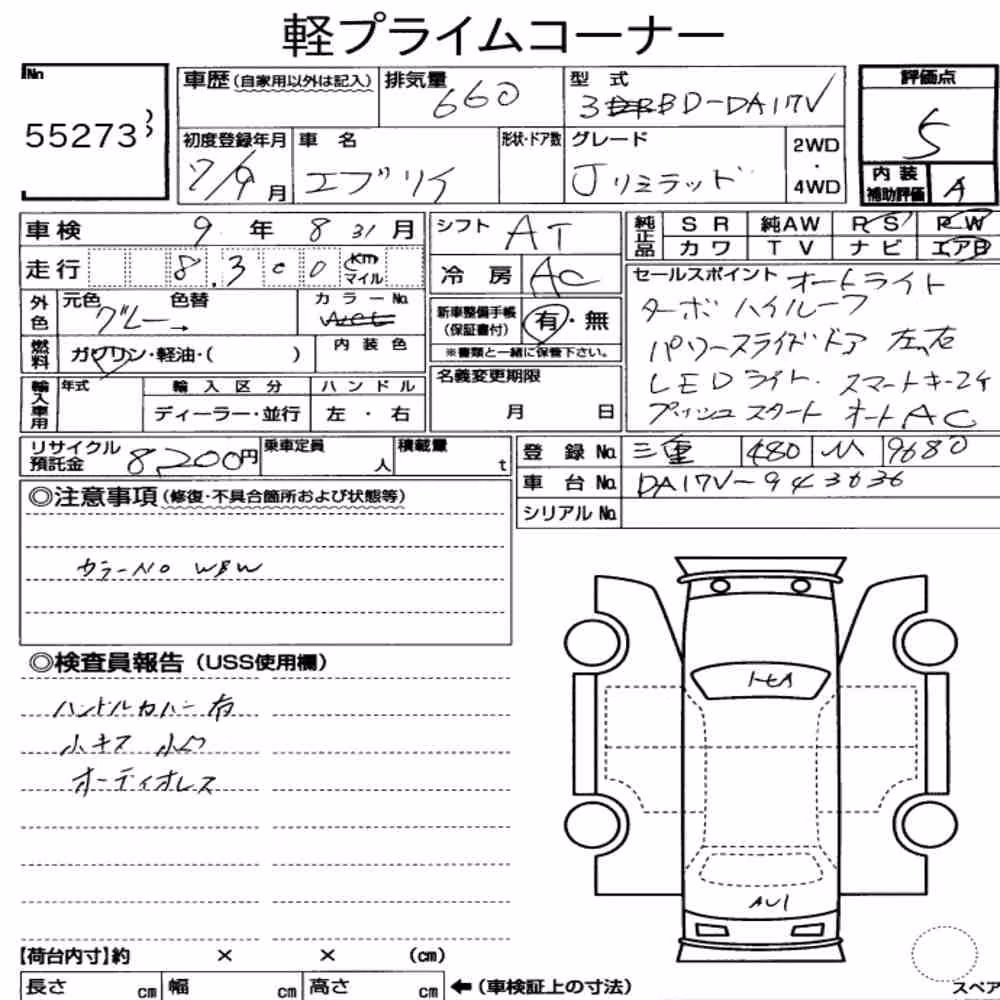 軽プライムコーナー
No
55273
車歴(自家用以外は記入)
排気量 660
型式 3BD-DA17V
評価点 5
初度登録年月 7/9月
車名 エブリイ
形状・ドア数
グレード Jリミテッド
2WD・4WD
内装補助評価 A
車検 9年 8 31月
シフト AT
純正品 SR 純AW PS PW
カワ TV ナビ エアB
走行 8,300 km マイル
冷房 AC
セールスポイント オートライト
ターボ ハイルーフ
パワースライドドア 左、右
LEDライト. スマートキー2ケ
プッシュスタート オートAC
外色 元色 グレー 色替 カラーNo.
新車整備手帳(保証書付) 有・無
※書類と一緒に保管下さい。
燃料 ガソリン・軽油・( )
内装色
名義変更期限 月 日
輸入車用 年式 輸入区分 ハンドル
ディーラー・並行 左・右
リサイクル預託金 8,200円
乗車定員 人
積載量 t
登録No. 三重 480 9680
車台No. DA17V-943636
シリアルNo.
◎注意事項(修復・不具合箇所および状態等)
カラーNO WBW
◎検査員報告(USS使用欄)
ハンドルカバー有
小キズ 小凹
オーディオレス
AU1
【荷台内寸】約 × × (cm)
長さ cm 幅 cm 高さ cm ←(車検証上の寸法)
スペア